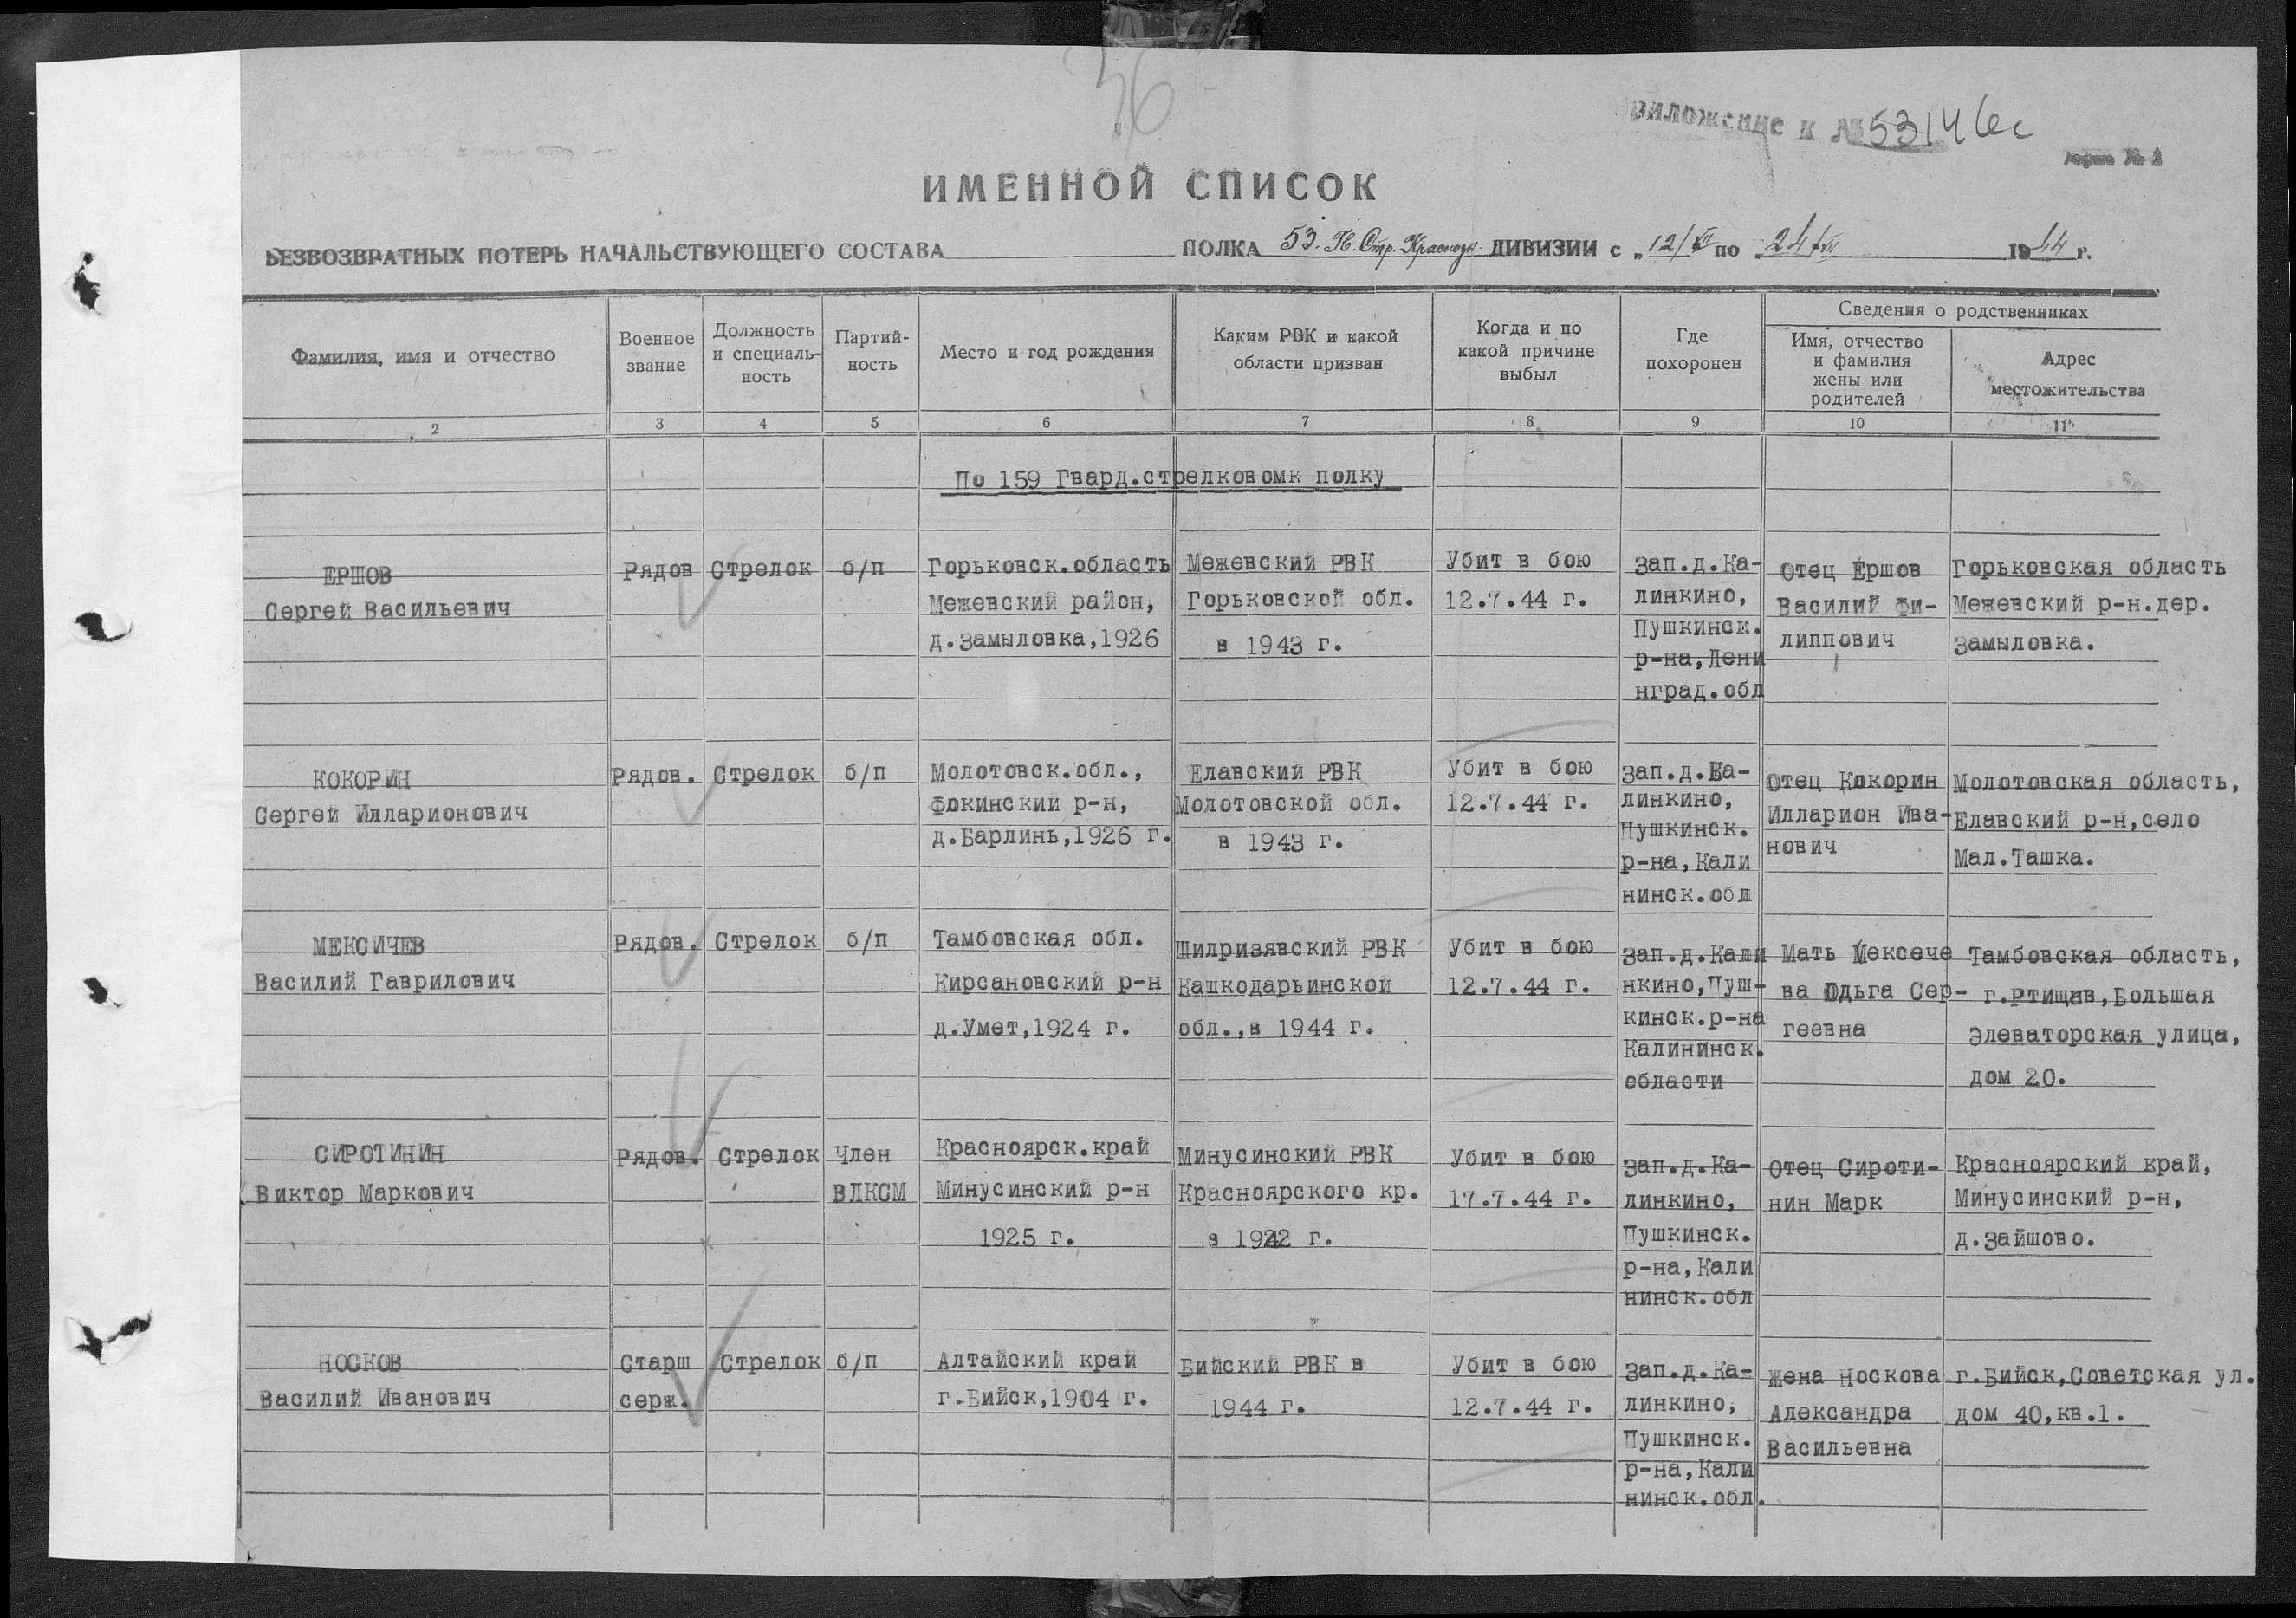 36
Приложение к № 53146с
Форма № 2
ИМЕННОЙ СПИСОК
БЕЗВОЗВРАТНЫХ ПОТЕРЬ НАЧАЛЬСТВУЮЩЕГО СОСТАВА ПОЛКА 53. Гв. Стр. Краснозн. ДИВИЗИИ с „12/VII по „24/VII 1944 г.
Фамилия, имя и отчество
Военное
звание
Должность
и специаль-
ность
Партий-
ность
Место и год рождения
Каким РВК и какой
области призван
Когда и по
какой причине
выбыл
Где
похоронен
Сведения о родственниках
Имя, отчество
и фамилия
жены или
родителей
Адрес
местожительства
2 3 4 5 6 7 8 9 10 11
По 159 Гвард.стрелковомк полку
ЕРШОВ
Сергей Васильевич
Рядов
Стрелок
б/п
Горьковск.область
Межевский район,
д.Замыловка,1926
Межевский РВК
Горьковской обл.
в 1943 г.
Убит в бою
12.7.44 г.
Зап.д.Ка-
линкино,
Пушкинск.
р-на,Лени
нград.обл
Отец Ершов
Василий Фи-
липпович
Горьковская область
Межевский р-н.дер.
Замыловка.
КОКОРИН
Сергей Илларионович
Рядов.
Стрелок
б/п
Молотовск.обл.,
Фокинский р-н,
д.Барлинь,1926 г.
Елавский РВК
Молотовской обл.
в 1943 г.
Убит в бою
12.7.44 г.
Зап.д.Ка-
линкино,
Пушкинск.
р-на,Кали
нинск.обл
Отец Кокорин
Илларион Ива-
нович
Молотовская область,
Елавский р-н,село
Мал.Ташка.
МЕКСИЧЕВ
Василий Гаврилович
Рядов.
Стрелок
б/п
Тамбовская обл.
Кирсановский р-н
д.Умет,1924 г.
Шилризявский РВК
Кашкодарьинской
обл.,в 1944 г.
Убит в бою
12.7.44 г.
Зап.д.Кали
нкино,Пуш-
кинск.р-на
Калининск.
области
Мать Мексече
ва Ольга Сер-
геевна
Тамбовская область,
г.Ртищев,Большая
Элеваторская улица,
дом 20.
СИРОТИНИН
Виктор Маркович
Рядов.
Стрелок
Член
ВЛКСМ
Красноярск.край
Минусинский р-н
1925 г.
Минусинский РВК
Красноярского кр.
в 1942 г.
Убит в бою
17.7.44 г.
Зап.д.Ка-
линкино,
Пушкинск.
р-на,Кали
нинск.обл
Отец Сироти-
нин Марк
Красноярский край,
Минусинский р-н,
д.Зайшово.
НОСКОВ
Василий Иванович
Старш
серж.
Стрелок
б/п
Алтайский край
г.Бийск,1904 г.
Бийский РВК в
1944 г.
Убит в бою
12.7.44 г.
Зап.д.Ка-
линкино,
Пушкинск.
р-на,Кали
нинск.обл.
Жена Носкова
Александра
Васильевна
г.Бийск,Советская ул.
дом 40,кв.1.